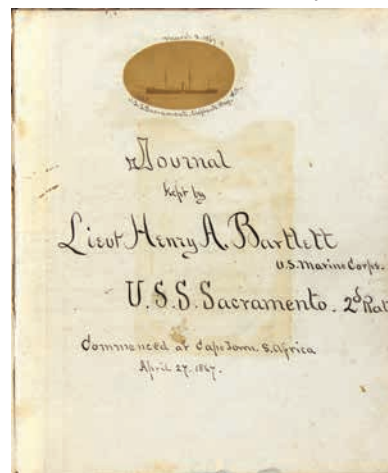 March 2, 1867
Journal
Kept by
Lieut Henry A. Bartlett
U.S. Marine Corps.
U.S.S. Sacramento. 2d Rat
Commenced at Cape Town. S. Africa
April 27. 1867.